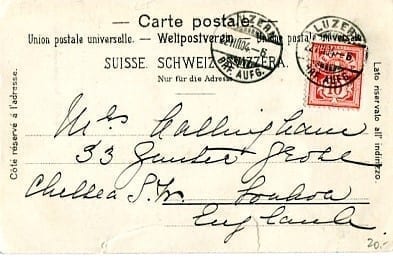 Carte postale.
Union postale universelle. — Weltpostverein. — Unione postale universale.
SUISSE. SCHWEIZ. SVIZZERA.
Nur für die Adresse.
Côté réservé à l'adresse.
Lato riservato all'indirizzo.
LUZERN
BRF. AUFG.
LUZERN
BRF. AUFG.
10
33 Gunter Grove
Chelsea S.W. London
England
20.-